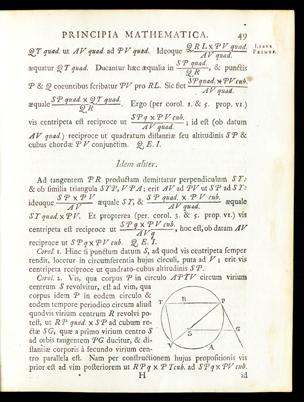 PRINCIPIA MATHEMATICA. 49
LIBER
PRIMUS.
QT quad. ut AV quad. ad PV quad. Ideoque QRL × PV quad. / AV quad.
æquatur QT quad. Ducantur hæc æqualia in SP quad. / QR, & punctis
P & Q coeuntibus scribatur PV pro RL. Sic fiet SP quad. × PV cub. / AV quad.
æquale SP quad. × QT quad. / QR. Ergo (per corol. 1. & 5. prop. VI.)
vis centripeta est reciproce ut SPq × PV cub. / AV quad.; id est (ob datum
AV quad.) reciproce ut quadratum distantiæ seu altitudinis SP &
cubus chordæ PV conjunctim. Q. E. I.
Idem aliter.
Ad tangentem PR productam demittatur perpendiculum SY:
& ob similia triangula SYP, VPA; erit AV ad PV ut SP ad SY:
ideoque SP × PV / AV æquale SY, & SP quad. × PV cub. / AV quad. æquale
SY quad. × PV. Et propterea (per corol. 3. & 5. prop. VI.) vis
centripeta est reciproce ut SPq × PV cub. / AVq, hoc est, ob datam AV
reciproce ut SPq × PV cub. Q. E. I.
Corol. 1. Hinc si punctum datum S, ad quod vis centripeta semper
tendit, locetur in circumferentia hujus circuli, puta ad V; erit vis
centripeta reciproce ut quadrato-cubus altitudinis SP.
Corol. 2. Vis, qua corpus P in circulo APTV circum virium
centrum S revolvitur, est ad vim, qua
corpus idem P in eodem circulo &
eodem tempore periodico circum aliud
quodvis virium centrum R revolvi po-
test, ut RP quad. × SP ad cubum re-
ctæ SG, quæ a primo virium centro S
ad orbis tangentem PG ducitur, & di-
stantiæ corporis a secundo virium cen-
tro parallela est. Nam per constructionem hujus propositionis vis
prior est ad vim posteriorem ut RPq × PT cub. ad SPq × PV cub.
H id
T R P
S G
V A